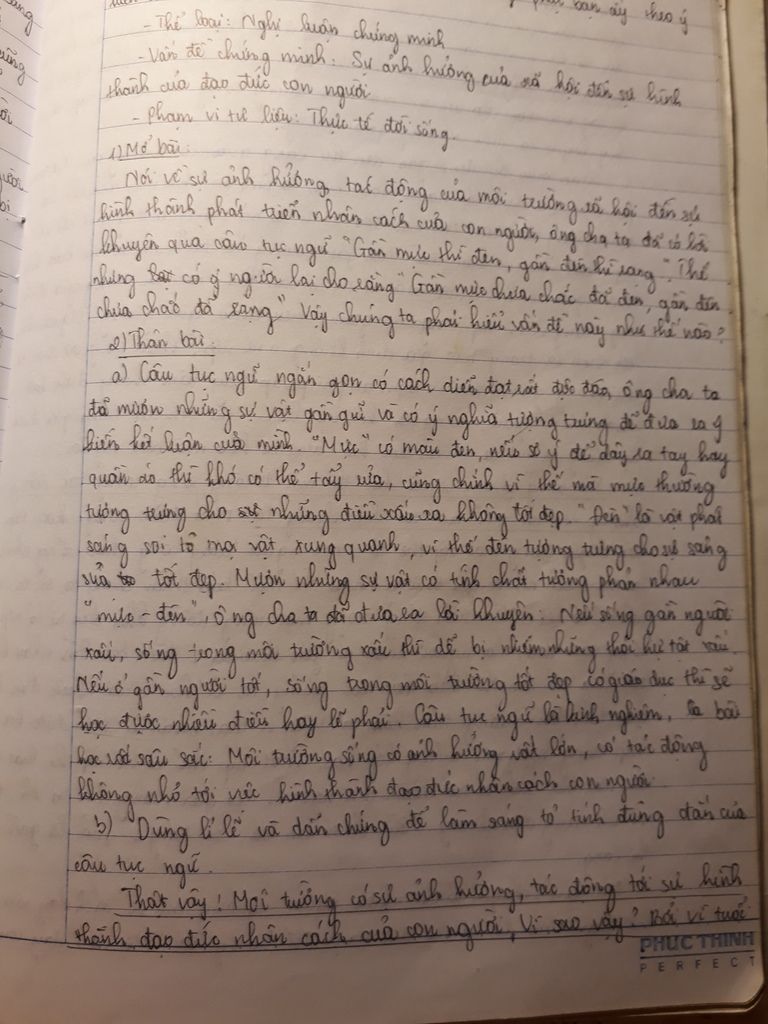 phải bạn ấy theo ý
- Thể loại: Nghị luận chứng minh
- Vấn đề chứng minh: Sự ảnh hưởng của xã hội đến sự hình
thành của đạo đức con người.
- Phạm vi tư liệu: Thực tế đời sống.
1) Mở bài:
Nói về sự ảnh hưởng, tác động của môi trường xã hội đến sự
hình thành phát triển nhân cách của con người, ông cha ta đã có lời
khuyên qua câu tục ngữ "Gần mực thì đen, gần đèn thì rạng". Thế
nhưng có ý người lại cho rằng "Gần mực chưa chắc đã đen, gần đèn
chưa chắc đã rạng". Vậy chúng ta phải hiểu vấn đề này như thế nào?
2) Thân bài:
a) Câu tục ngữ ngắn gọn có cách diễn đạt rất độc đáo, ông cha ta
đã mượn những sự vật gần gũi và có ý nghĩa tượng trưng để đưa ra ý
kiến kết luận của mình. "Mực" có màu đen, nếu sơ ý để dây ra tay hay
quần áo thì khó có thể tẩy rửa, cũng chính vì thế mà mực thường
tượng trưng cho những điều xấu xa không tốt đẹp. "Đèn" là vật phát
sáng soi tỏ mọi vật xung quanh, vì thế đèn tượng trưng cho sự sáng
sủa tốt đẹp. Mượn những sự vật có tính chất tương phản nhau
"mực - đèn", ông cha ta đã đưa ra lời khuyên: Nếu sống gần người
xấu, sống trong môi trường xấu thì dễ bị nhiễm những thói hư tật xấu.
Nếu ở gần người tốt, sống trong môi trường tốt đẹp có giáo dục thì sẽ
học được nhiều điều hay lẽ phải. Câu tục ngữ là kinh nghiệm, là bài
học rất sâu sắc: Môi trường sống có ảnh hưởng rất lớn, có tác động
không nhỏ tới việc hình thành đạo đức nhân cách con người.
b) Dùng lí lẽ và dẫn chứng để làm sáng tỏ tính đúng đắn của
câu tục ngữ.
Thật vậy! Môi trường có sự ảnh hưởng, tác động tới sự hình
thành đạo đức nhân cách của con người. Vì sao vậy? Bởi vì tuổi
PHUC THINH
PERFECT